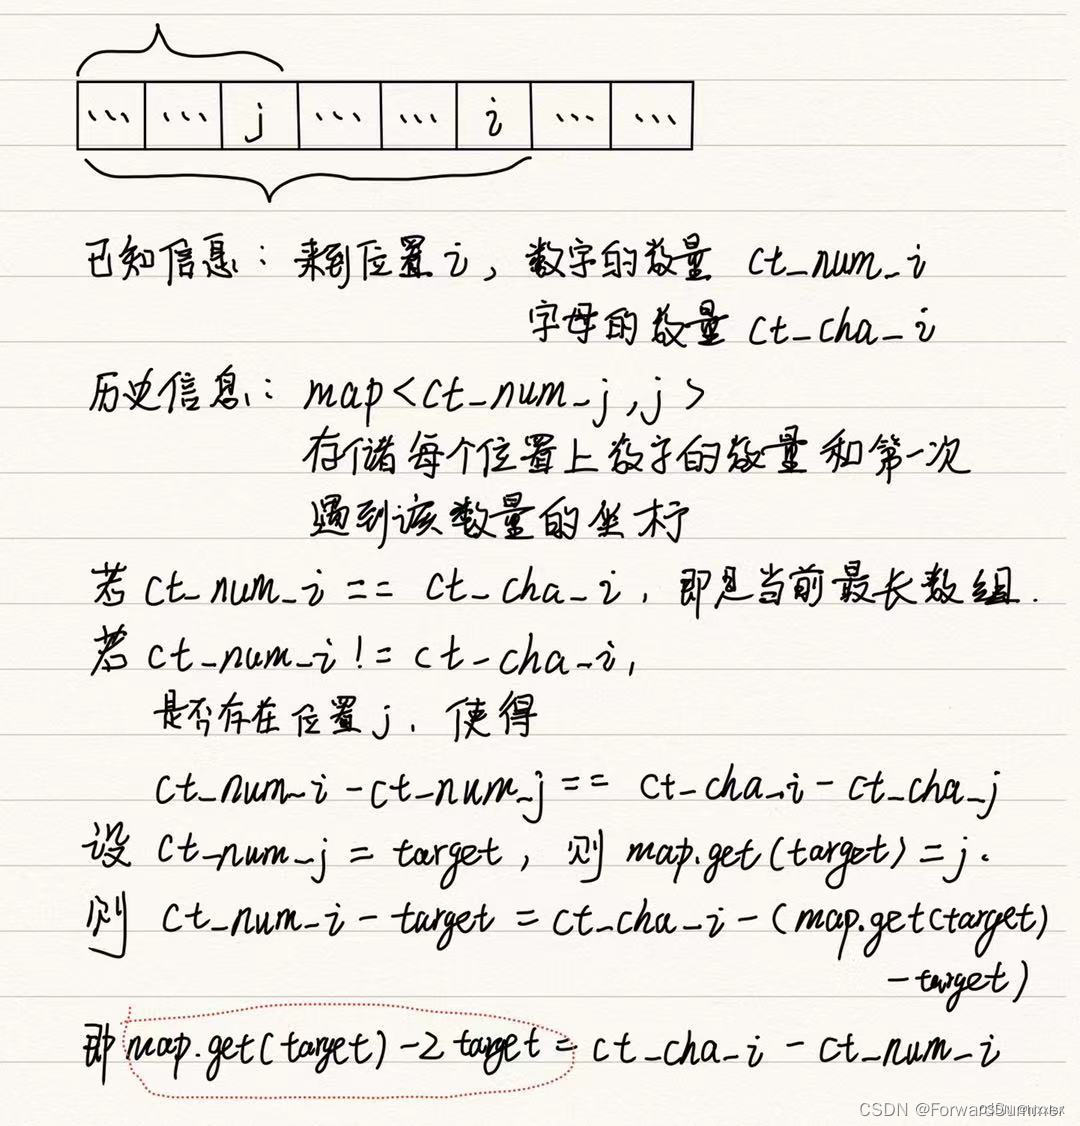 ... ... j ... ... i ... ...
已知信息：来到位置i，数字的数量 ct_num_i
字母的数量 ct_cha_i
历史信息：map<ct_num_j,j>
存储每个位置上数字的数量和第一次
遇到该数量的坐标
若 ct_num_i == ct_cha_i，即是当前最长数组.
若 ct_num_i != ct_cha_i，
是否存在位置j，使得
ct_num_i-ct_num_j == ct_cha_i-ct_cha_j
设 ct_num_j = target，则 map.get(target)=j.
则 ct_num_i-target = ct_cha_i-(map.get(target)
-target)
即 map.get(target)-2target = ct_cha_i - ct_num_i
CSDN @ForwardSummer